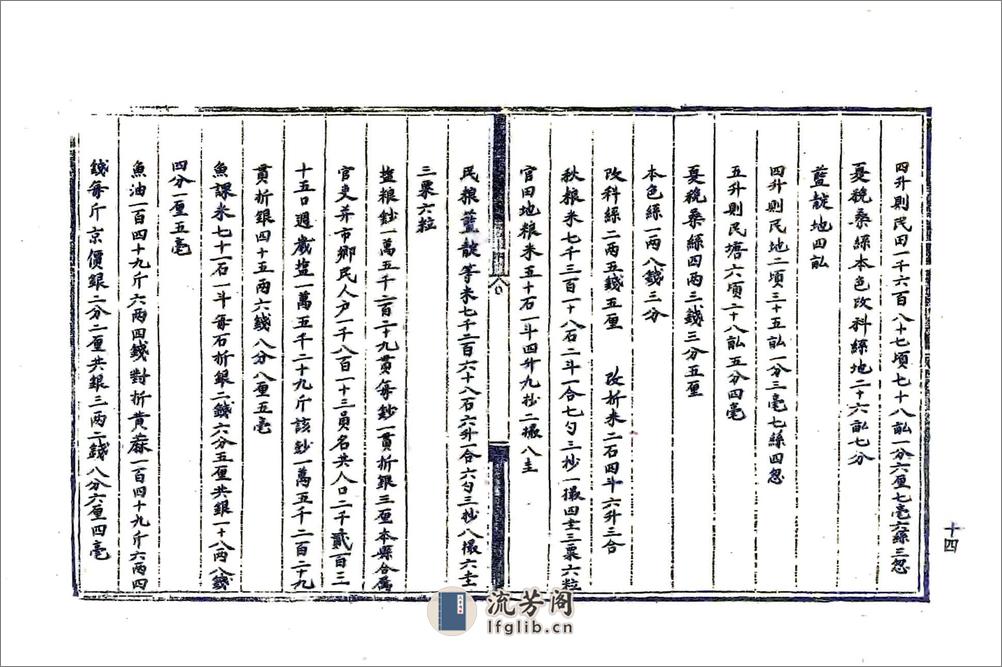 四升則民田一千六百八十七頃七十八畆一分六厘七毫六絲三忽
夏税桑絲本色改科絲地二十六畆七分
藍靛地四畆
四升則民地二頃三十五畆一分三毫七絲四忽
五升則民塘六頃二十八畆五分四毫
夏税桑絲四两三錢三分五厘
本色絲一两八錢三分
改科絲二两五錢五厘 改折米二石四斗六升三合
秋粮米七千三百一十八石二斗一合七勺三抄一撮四圭三粟六粒
官田地粮米五十石一斗四升九抄二撮八圭
民粮藍靛等米七千二百六十八石六升一合六勺三抄八撮六圭
三粟六粒
塩粮鈔一萬五千二百二十九貫每鈔一貫折銀三厘本縣合属
官吏并市鄉民人户一千八百一十三員名共人口二千貳百三
十五口週歲塩一萬五千二十九斤該鈔一萬五千二百二十九
貫折銀四十五两六錢八分八厘五毫
魚課米七十一石一斗每石折銀二錢六分五厘共銀一十八两八錢
四分一厘五毫
魚油一百四十九斤六两四錢對折黄蔴一百四十九斤六两四
錢每斤京價銀二分二厘共銀三两二錢八分六厘四毫
十四
流芳阁
lfglib.cn